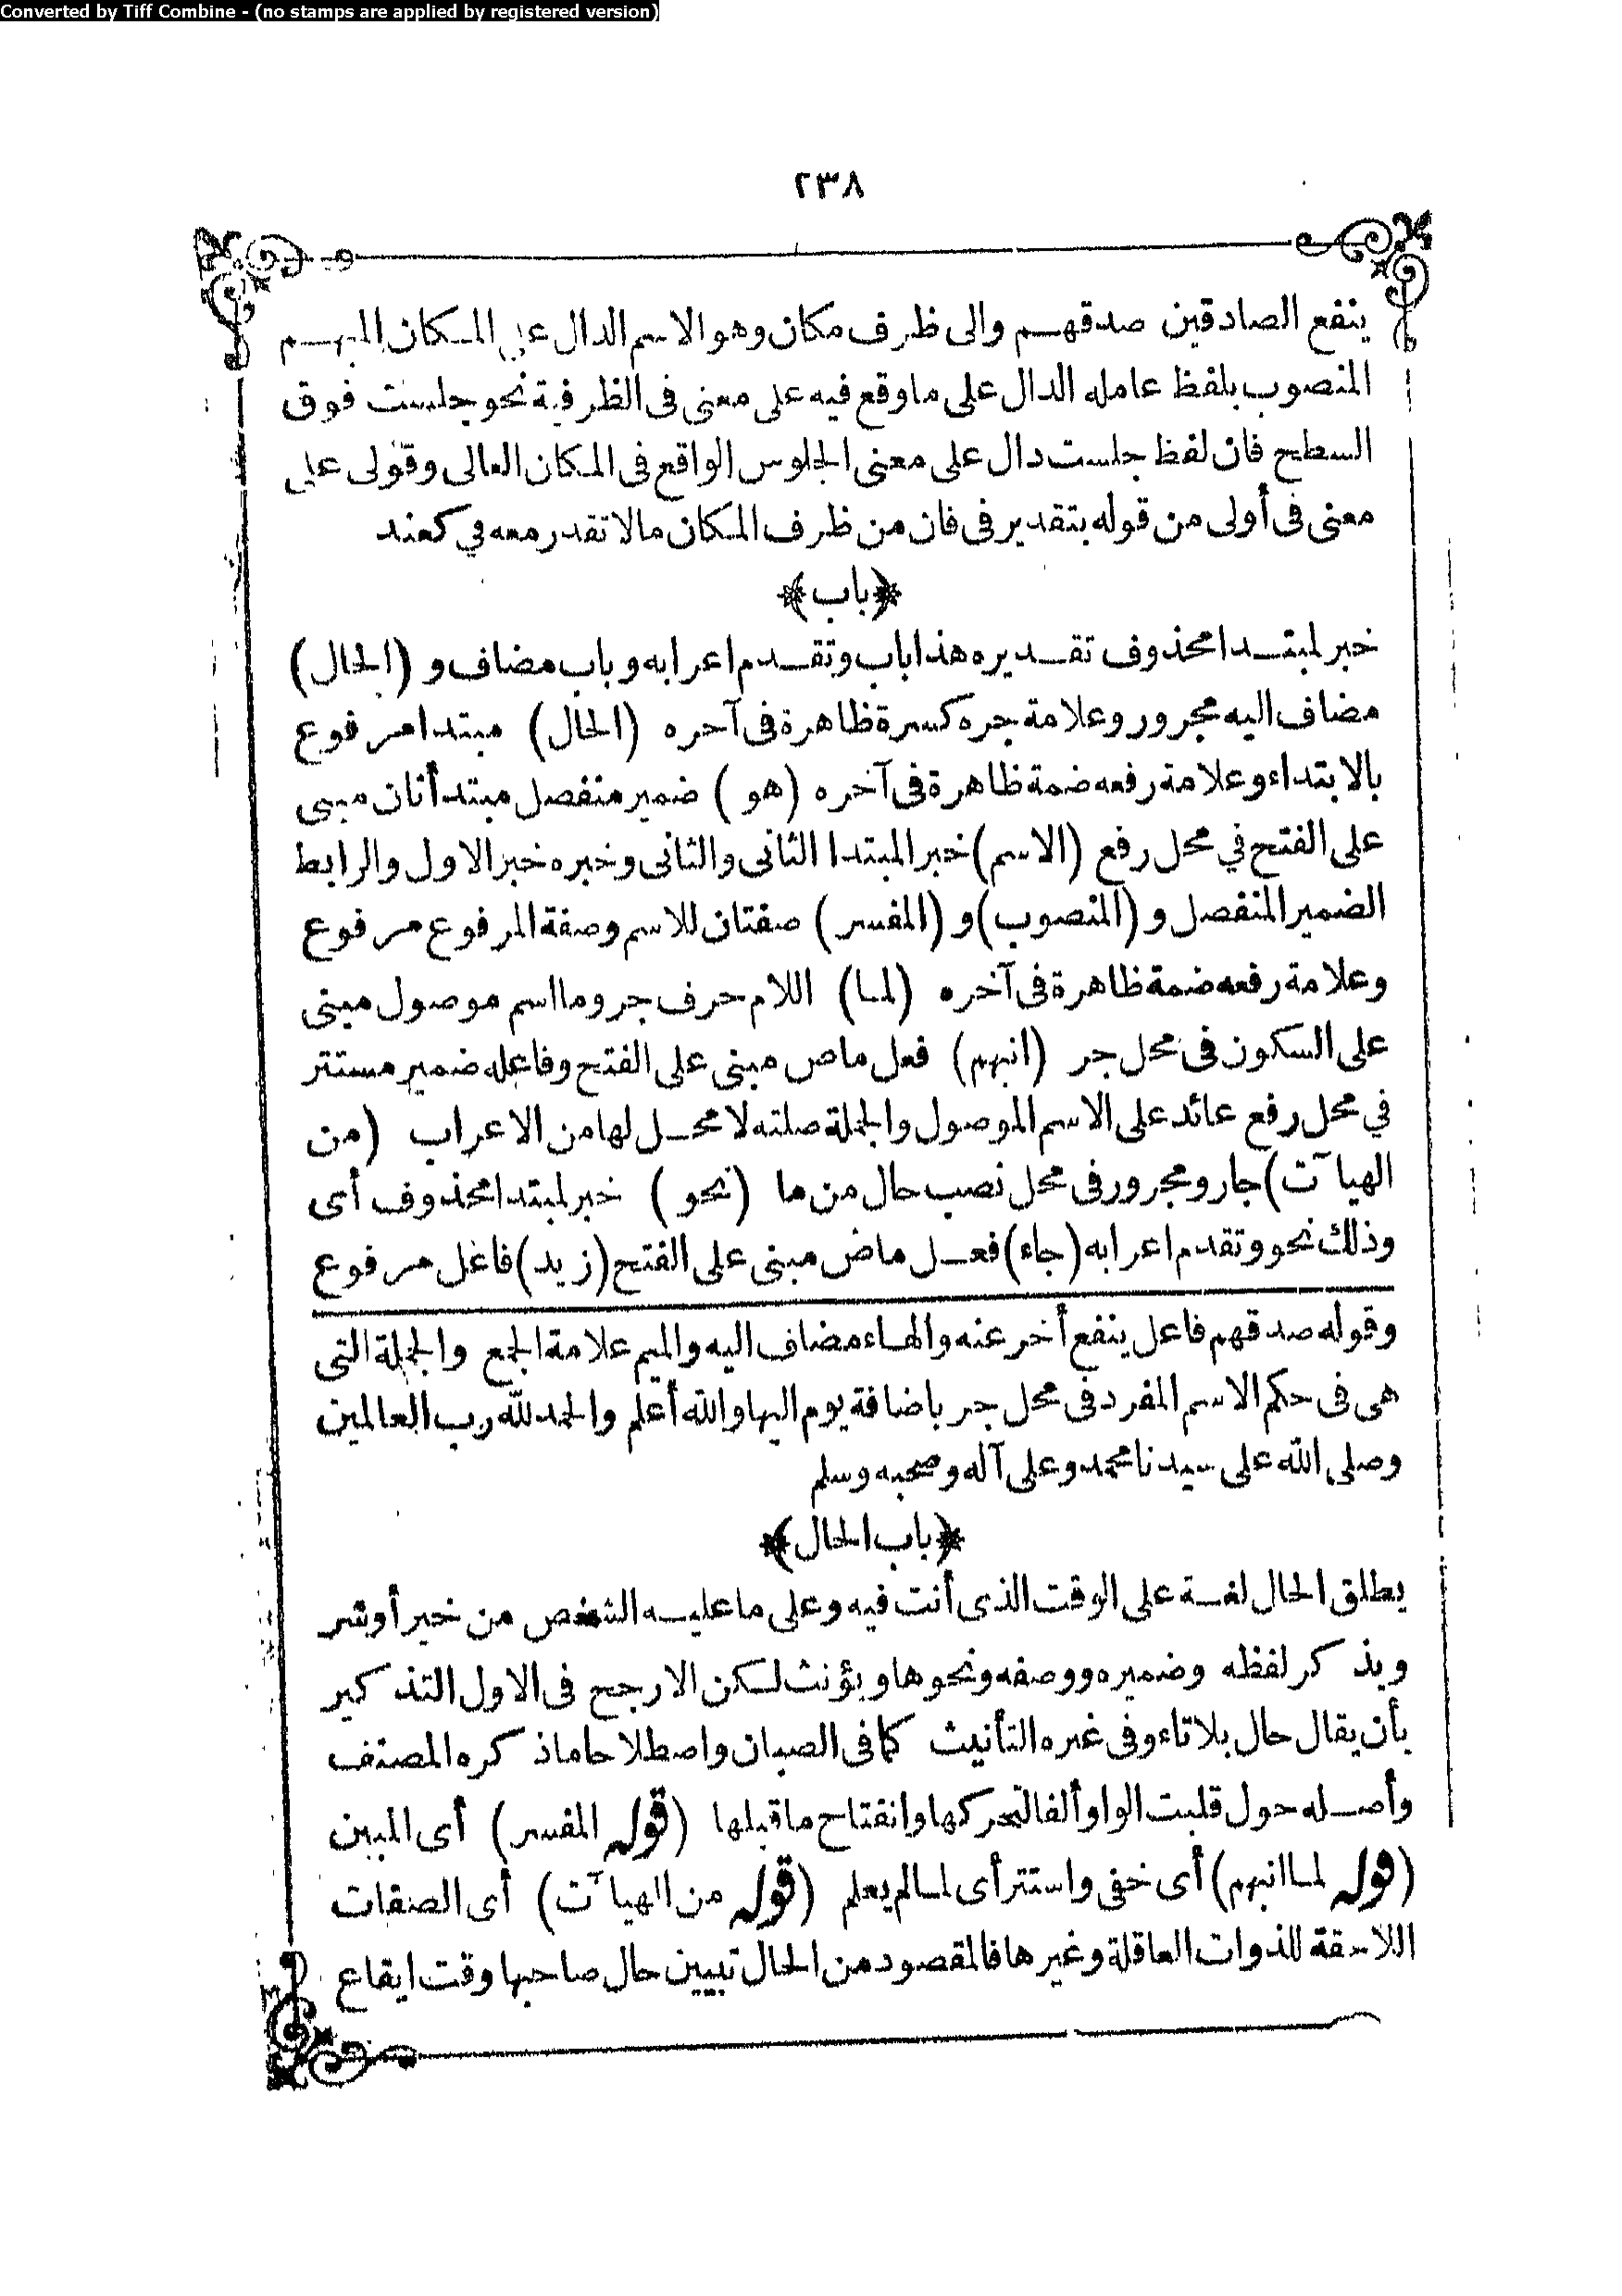 Converted by Tiff Combine - (no stamps are applied by registered version)
٢٣٨
ينفع الصادقين صدقهم والى ظرف مكان وهو الاسم الدال على المكان المبهم
المنصوب بلفظ عامله الدال على ما وقع فيه على معنى فى الظرفية نحو جلست فوق
السطح فان لفظ جلست دال على معنى الجلوس الواقع فى المكان العالى وقولى على
معنى فى أولى من قوله بتقدير فى فان من ظرف المكان مالا تقدر معه في كعند
﴿باب﴾
خبر لمبتدا محذوف تقديره هذا باب وتقدم اعرابه وباب مضاف و (الحال)
مضاف اليه مجرور وعلامة جره كسرة ظاهرة فى آحره (الحال) مبتدا مرفوع
بالابتداء وعلامة رفعه ضمة ظاهرة فى آخره (هو) ضمير منفصل مبتدأ ثان مبنى
على الفتح في محل رفع (الاسم) خبر المبتدا الثانى والثانى وخبره خبر الاول والرابط
الضمير المنفصل و (المنصوب) و (المفسر) صفتان للاسم وصفة المرفوع مرفوع
وعلامة رفعه ضمة ظاهرة فى آخره (لما) اللام حرف جر وما اسم موصول مبنى
على السكون فى محل جر (انبهم) فعل ماض مبنى على الفتح وفاعله ضمير مستتر
في محل رفع عائد على الاسم الموصول والجملة صلته لا محل لها من الاعراب (من
الهيآت) جار ومجرور فى محل نصب حال من ما (نحو) خبر لمبتدا محذوف أى
وذلك نحو وتقدم اعرابه (جاء) فعل ماض مبنى على الفتح (زيد) فاعل مرفوع
وقوله صدقهم فاعل ينفع أخر عنه والهاء مضاف اليه والميم علامة الجمع والجملة التى
هى فى حكم الاسم المفرد فى محل جر باضافة يوم اليها والله أعلم والحمد لله رب العالمين
وصلى الله على سيدنا محمد وعلى آله وصحبه وسلم
﴿باب الحال﴾
يطلق الحال لغة على الوقت الذى أنت فيه وعلى ما عليه الشخص من خير أو شر
ويذكر لفظه وضميره ووصفه ونحوها ويؤنث لكن الارجح فى الاول التذكير
بأن يقال حال بلا تاء وفى غيره التأنيث كما فى الصبان واصطلاحا ما ذكره المصنف
وأصله حول قلبت الواو ألفا لتحركها وانفتاح ما قبلها (قوله المفسر) أى المبين
(قوله لما انبهم) أى خفى واستتر أى لما لم يعلم (قوله من الهيآت) أى الصفات
اللاحقة للذوات العاقلة وغيرها فالمقصود من الحال تبيين حال صاحبها وقت ايقاع